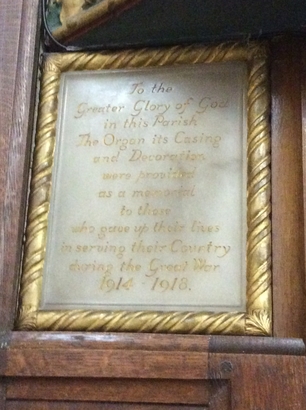 To the
Greater Glory of God
in this Parish
The Organ its Casing
and Decoration
were provided
as a memorial
to those
who gave up their lives
in serving their Country
during the Great War
1914 - 1918.